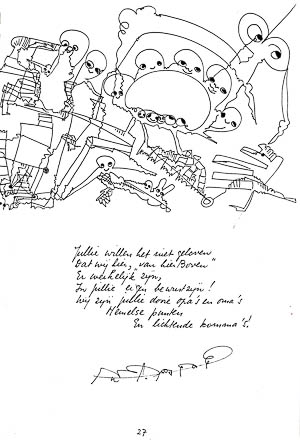 Jullie willen het niet geloven
Dat wij hier, "van hier Boven"
Er werkelijk zijn,
In jullie eigen bewustzijn!
Wij zijn jullie dode opa's en oma's
Hemelse punten
En lichtende komma's!
27